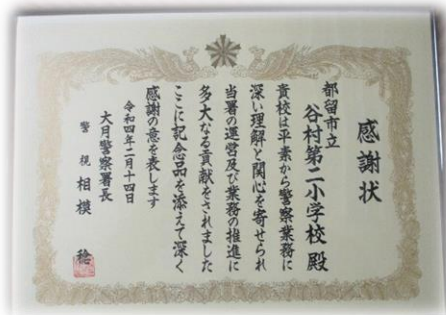 感謝状
都留市立
谷村第二小学校 殿
貴校は平素から警察業務に
深い理解と関心を寄せられ
当署の運営及び業務の推進に
多大なる貢献をされました
ここに記念品を添えて深く
感謝の意を表します
令和四年二月十四日
大月警察署長
警視 相模 稔